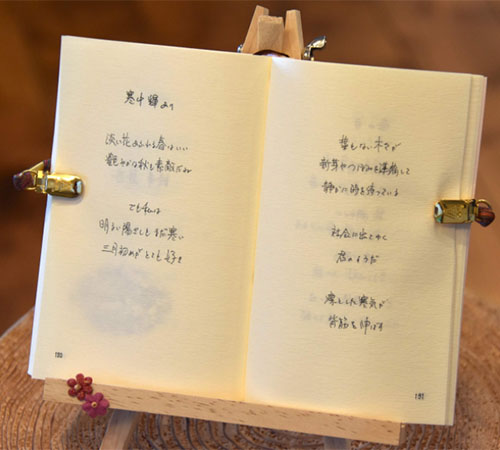 寒中輝より
淡い花あふれる春はいい
艶やかな秋も素敵だね
でも私は
明るい陽ざしもまだ寒い
三月初めがとても好き
130
葉もない木々が
新芽やつぼみを準備して
静かに時を待っている
社会に出てゆく
君のようだ
凛とした寒気が
背筋を伸ばす
131